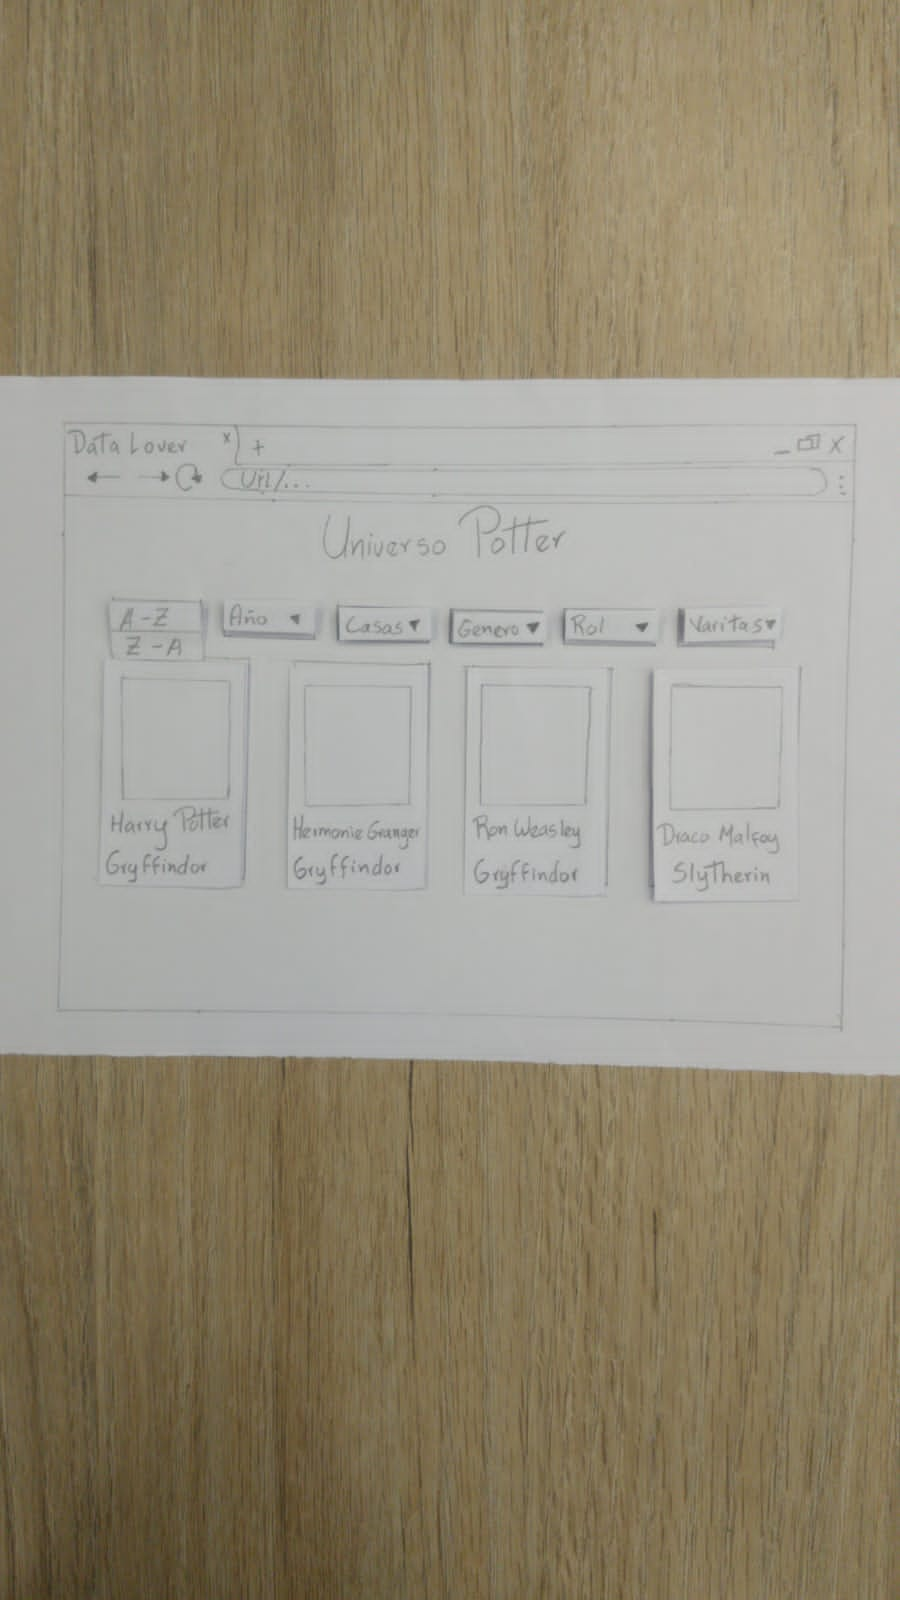 Data Lover x +
Url/...
Universo Potter
A-Z
Z-A
Año
Casas
Genero
Rol
Varitas
Harry Potter
Gryffindor
Hermonie Granger
Gryffindor
Ron Weasley
Gryffindor
Draco Malfoy
Slytherin